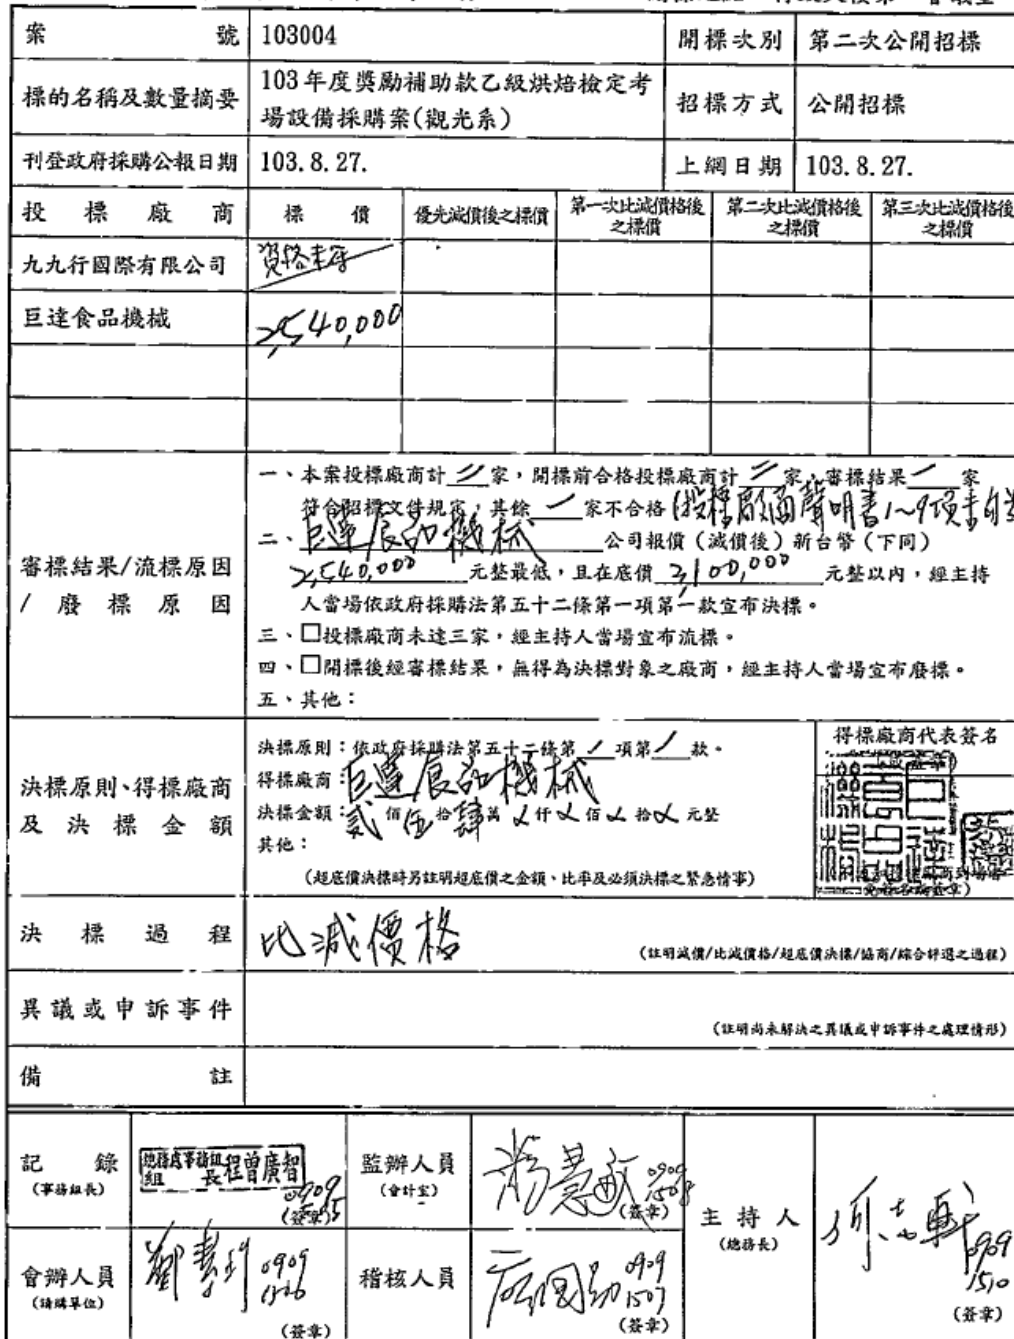 案號 103004 開標次別 第二次公開招標
標的名稱及數量摘要 103年度獎勵補助款乙級烘焙檢定考
場設備採購案(觀光系) 招標方式 公開招標
刊登政府採購公報日期 103.8.27. 上網日期 103.8.27.
投標廠商 標價 優先減價後之標價 第一次比減價格後之標價 第二次比減價格後之標價 第三次比減價格後之標價
九九行國際有限公司 資格未符
巨達食品機械 2,540,000
審標結果/流標原因/廢標原因
一、本案投標廠商計二家,開標前合格投標廠商計二家,審標結果一家
符合招標文件規定,其餘一家不合格(投標廠商聲明書1~9項書
二、巨達食品機械公司報價(減價後)新台幣(下同)
2,540,000元整最低,且在底價 100,000元整以內,經主持
人當場依政府採購法第五十二條第一項第一款宣布決標。
三、□投標廠商未達三家,經主持人當場宣布流標。
四、□開標後經審標結果,無得為決標對象之廠商,經主持人當場宣布廢標。
五、其他:
決標原則、得標廠商及決標金額
決標原則:依政府採購法第五十二條第1項第1款。
得標廠商:巨達食品機械
決標金額:貳佰伍拾肆萬 仟 佰 拾 元整
其他:
(超底價決標時另註明超底價之金額、比率及必須決標之緊急情事)
得標廠商代表簽名
決標過程 比減價格 (註明減價/比減價格/超底價決標/協商/綜合評選之過程)
異議或申訴事件 (註明尚未解決之異議或申訴事件之處理情形)
備註
記錄 (事務組長) 總務處事務組組長程曾廣智 0909 (簽章)
監辦人員 (會計室) 0909 (簽章)
主持人 (總務長) 0909 1510 (簽章)
會辦人員 (請購單位) 0909 (簽章)
稽核人員 0909 1507 (簽章)